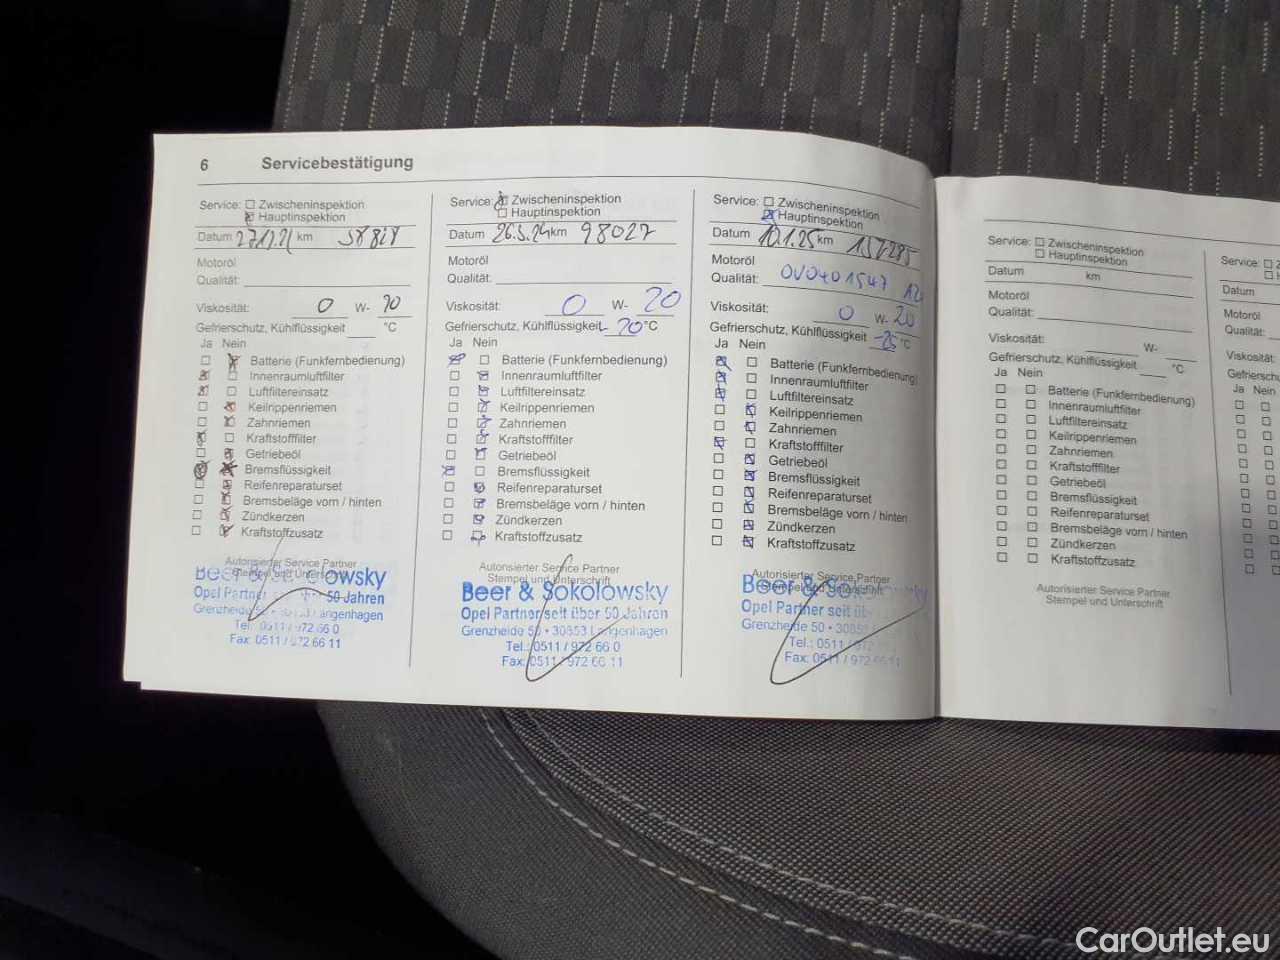 6 Servicebestätigung
Service: Zwischeninspektion
Hauptinspektion
Datum km
Motoröl
Qualität:
Viskosität: 0 W-
Gefrierschutz, Kühlflüssigkeit °C
Ja Nein
Batterie (Funkfernbedienung)
Innenraumluftfilter
Luftfiltereinsatz
Keilrippenriemen
Zahnriemen
Kraftstofffilter
Getriebeöl
Bremsflüssigkeit
Reifenreparaturset
Bremsbeläge vorn / hinten
Zündkerzen
Kraftstoffzusatz
Autorisierter Service Partner
Stempel und Unterschrift
Beer & Sokolowsky
Opel Partner 50 Jahren
Grenzheide 50 • Langenhagen
Tel.: 0511 / 972 66 0
Fax: 0511 / 972 66 11
Service: Zwischeninspektion
Hauptinspektion
Datum 26.3.24 km 98027
Motoröl
Qualität:
Viskosität: 0 W- 20
Gefrierschutz, Kühlflüssigkeit °C
Ja Nein
Batterie (Funkfernbedienung)
Innenraumluftfilter
Luftfiltereinsatz
Keilrippenriemen
Zahnriemen
Kraftstofffilter
Getriebeöl
Bremsflüssigkeit
Reifenreparaturset
Bremsbeläge vorn / hinten
Zündkerzen
Kraftstoffzusatz
Autorisierter Service Partner
Stempel und Unterschrift
Beer & Sokolowsky
Opel Partner seit über 50 Jahren
Grenzheide 50 • 30853 Langenhagen
Tel.: 0511 / 972 66 0
Fax: 0511 / 972 66 11
Service: Zwischeninspektion
Hauptinspektion
Datum 10.1.25 km 157285
Motoröl
Qualität: OV0401547
Viskosität: 0 W- 20
Gefrierschutz, Kühlflüssigkeit -25 °C
Ja Nein
Batterie (Funkfernbedienung)
Innenraumluftfilter
Luftfiltereinsatz
Keilrippenriemen
Zahnriemen
Kraftstofffilter
Getriebeöl
Bremsflüssigkeit
Reifenreparaturset
Bremsbeläge vorn / hinten
Zündkerzen
Kraftstoffzusatz
Autorisierter Service Partner
Stempel und Unterschrift
Beer & Sokolowsky
Opel Partner seit üb
Grenzheide 50 • 3085
Tel.: 0511 / 972
Fax: 0511 / 972 66 11
Service: Zwischeninspektion
Hauptinspektion
Datum km
Motoröl
Qualität:
Viskosität: W-
Gefrierschutz, Kühlflüssigkeit °C
Ja Nein
Batterie (Funkfernbedienung)
Innenraumluftfilter
Luftfiltereinsatz
Keilrippenriemen
Zahnriemen
Kraftstofffilter
Getriebeöl
Bremsflüssigkeit
Reifenreparaturset
Bremsbeläge vorn / hinten
Zündkerzen
Kraftstoffzusatz
Autorisierter Service Partner
Stempel und Unterschrift
Service: Z
Datum
Motoröl
Qualität:
Viskosität:
Gefriersch
Ja Nein
CarOutlet.eu